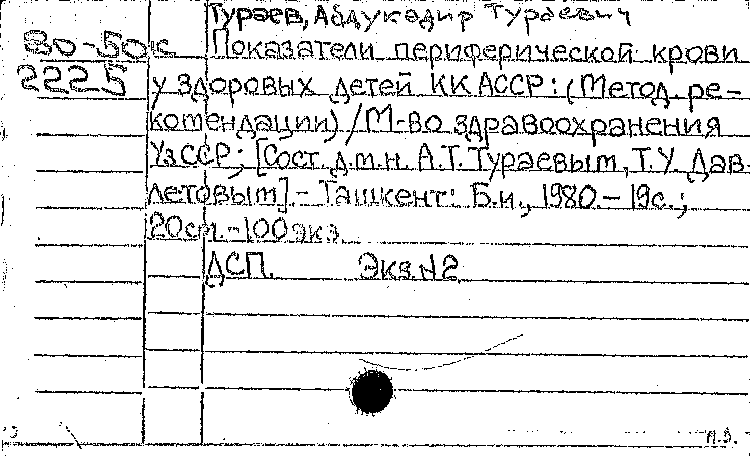 Тураев, Абдукадир Тураевич
80-50к
222.5
Показатели периферической крови
у здоровых детей ККАССР: (Метод. ре-
комендации) / М-во здравоохранения
УзССР; [Сост. д.м.н. А.Т. Тураевым, Т.У. Дав-
летовым]. - Ташкент: Б.и., 1980. - 19с.;
20см. - 100 экз.
ДСП. Экз. №2